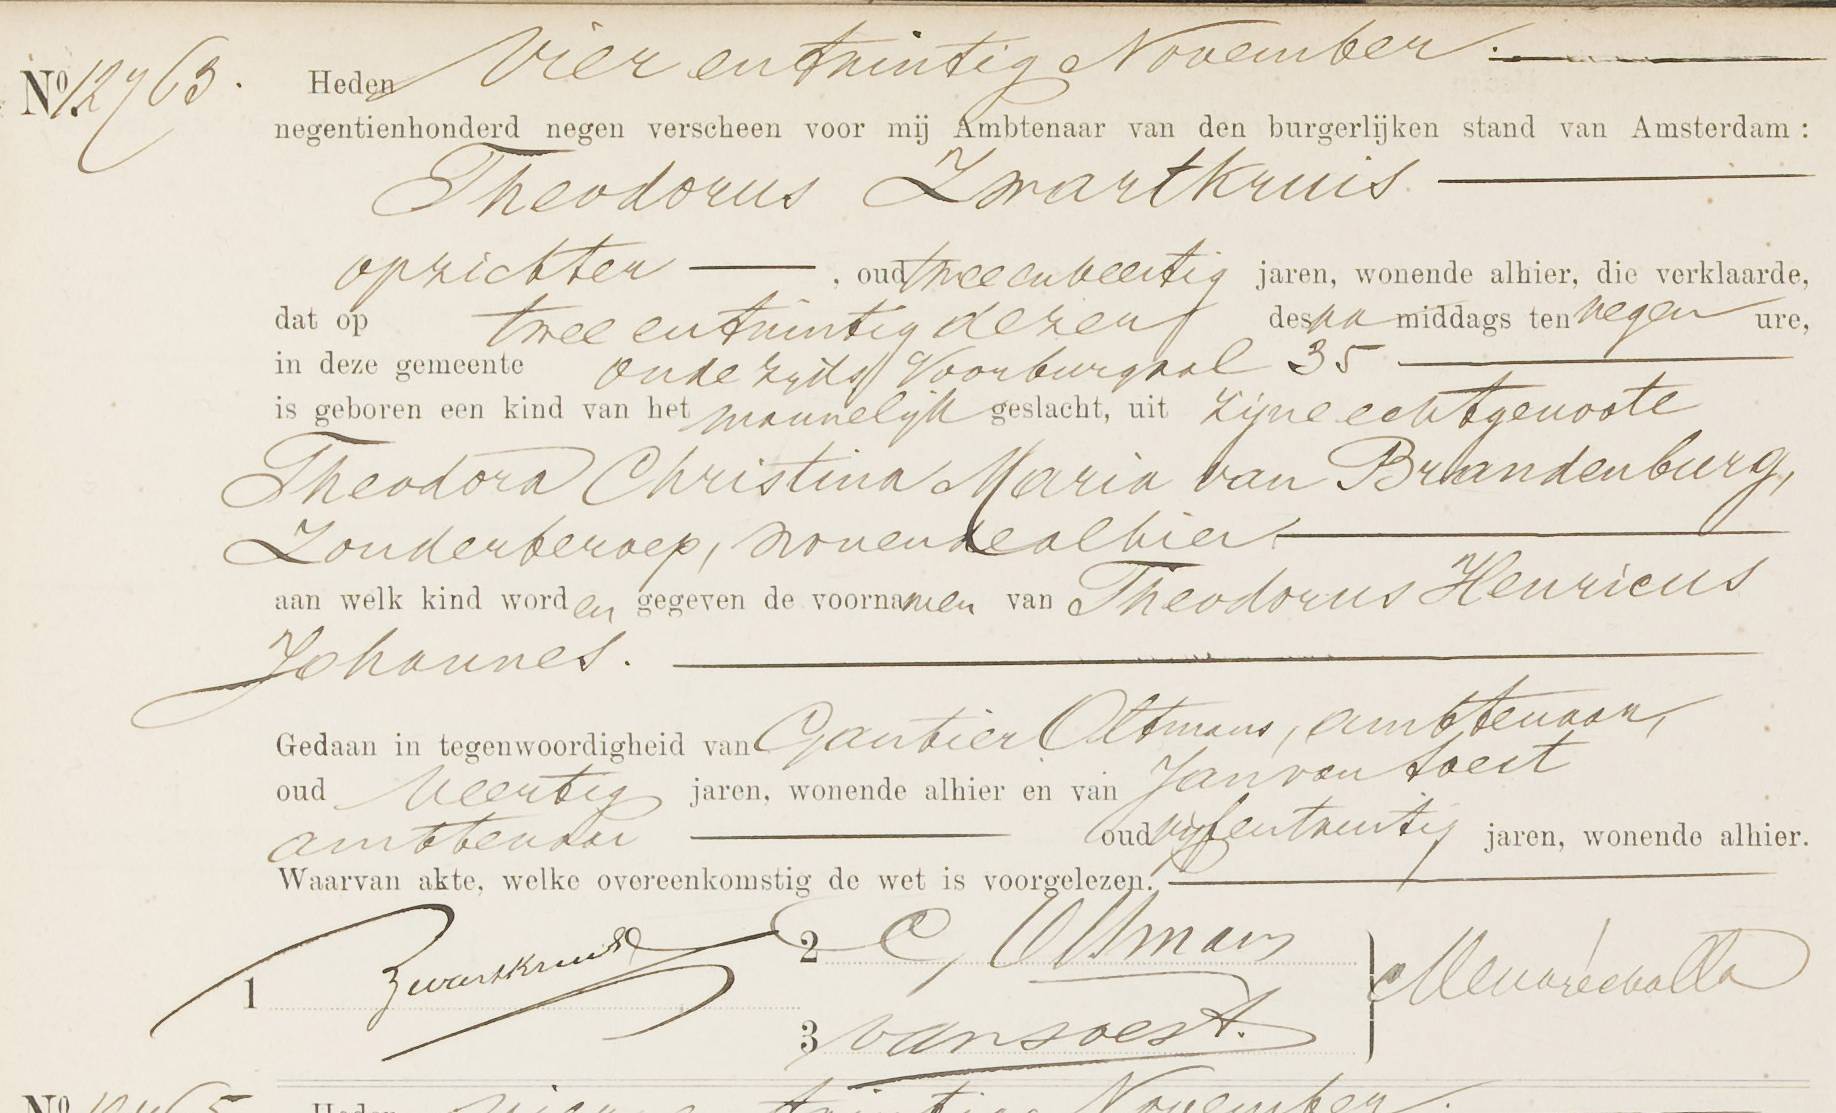 No. 12763. Heden Vier en twintig November.
negentienhonderd negen verscheen voor mij Ambtenaar van den burgerlijken stand van Amsterdam:
Theodorus Zwartkruis
opzichter, oud twee en veertig jaren, wonende alhier, die verklaarde,
dat op twee en twintig dezer des na middags ten negen ure,
in deze gemeente Oude zijds Voorburgwal 35
is geboren een kind van het mannelijk geslacht, uit zijne echtgenoote
Theodora Christina Maria van Brandenburg,
Zonder beroep, wonende alhier
aan welk kind worden gegeven de voornamen van Theodorus Henricus
Johannes.
Gedaan in tegenwoordigheid van Oltmans, ambtenaar,
oud Veertig jaren, wonende alhier en van Jan van Soest
ambtenaar oud vijf en twintig jaren, wonende alhier.
Waarvan akte, welke overeenkomstig de wet is voorgelezen.
1 Zwartkruis
2 Oltmans
3 van Soest.
No Heden November.